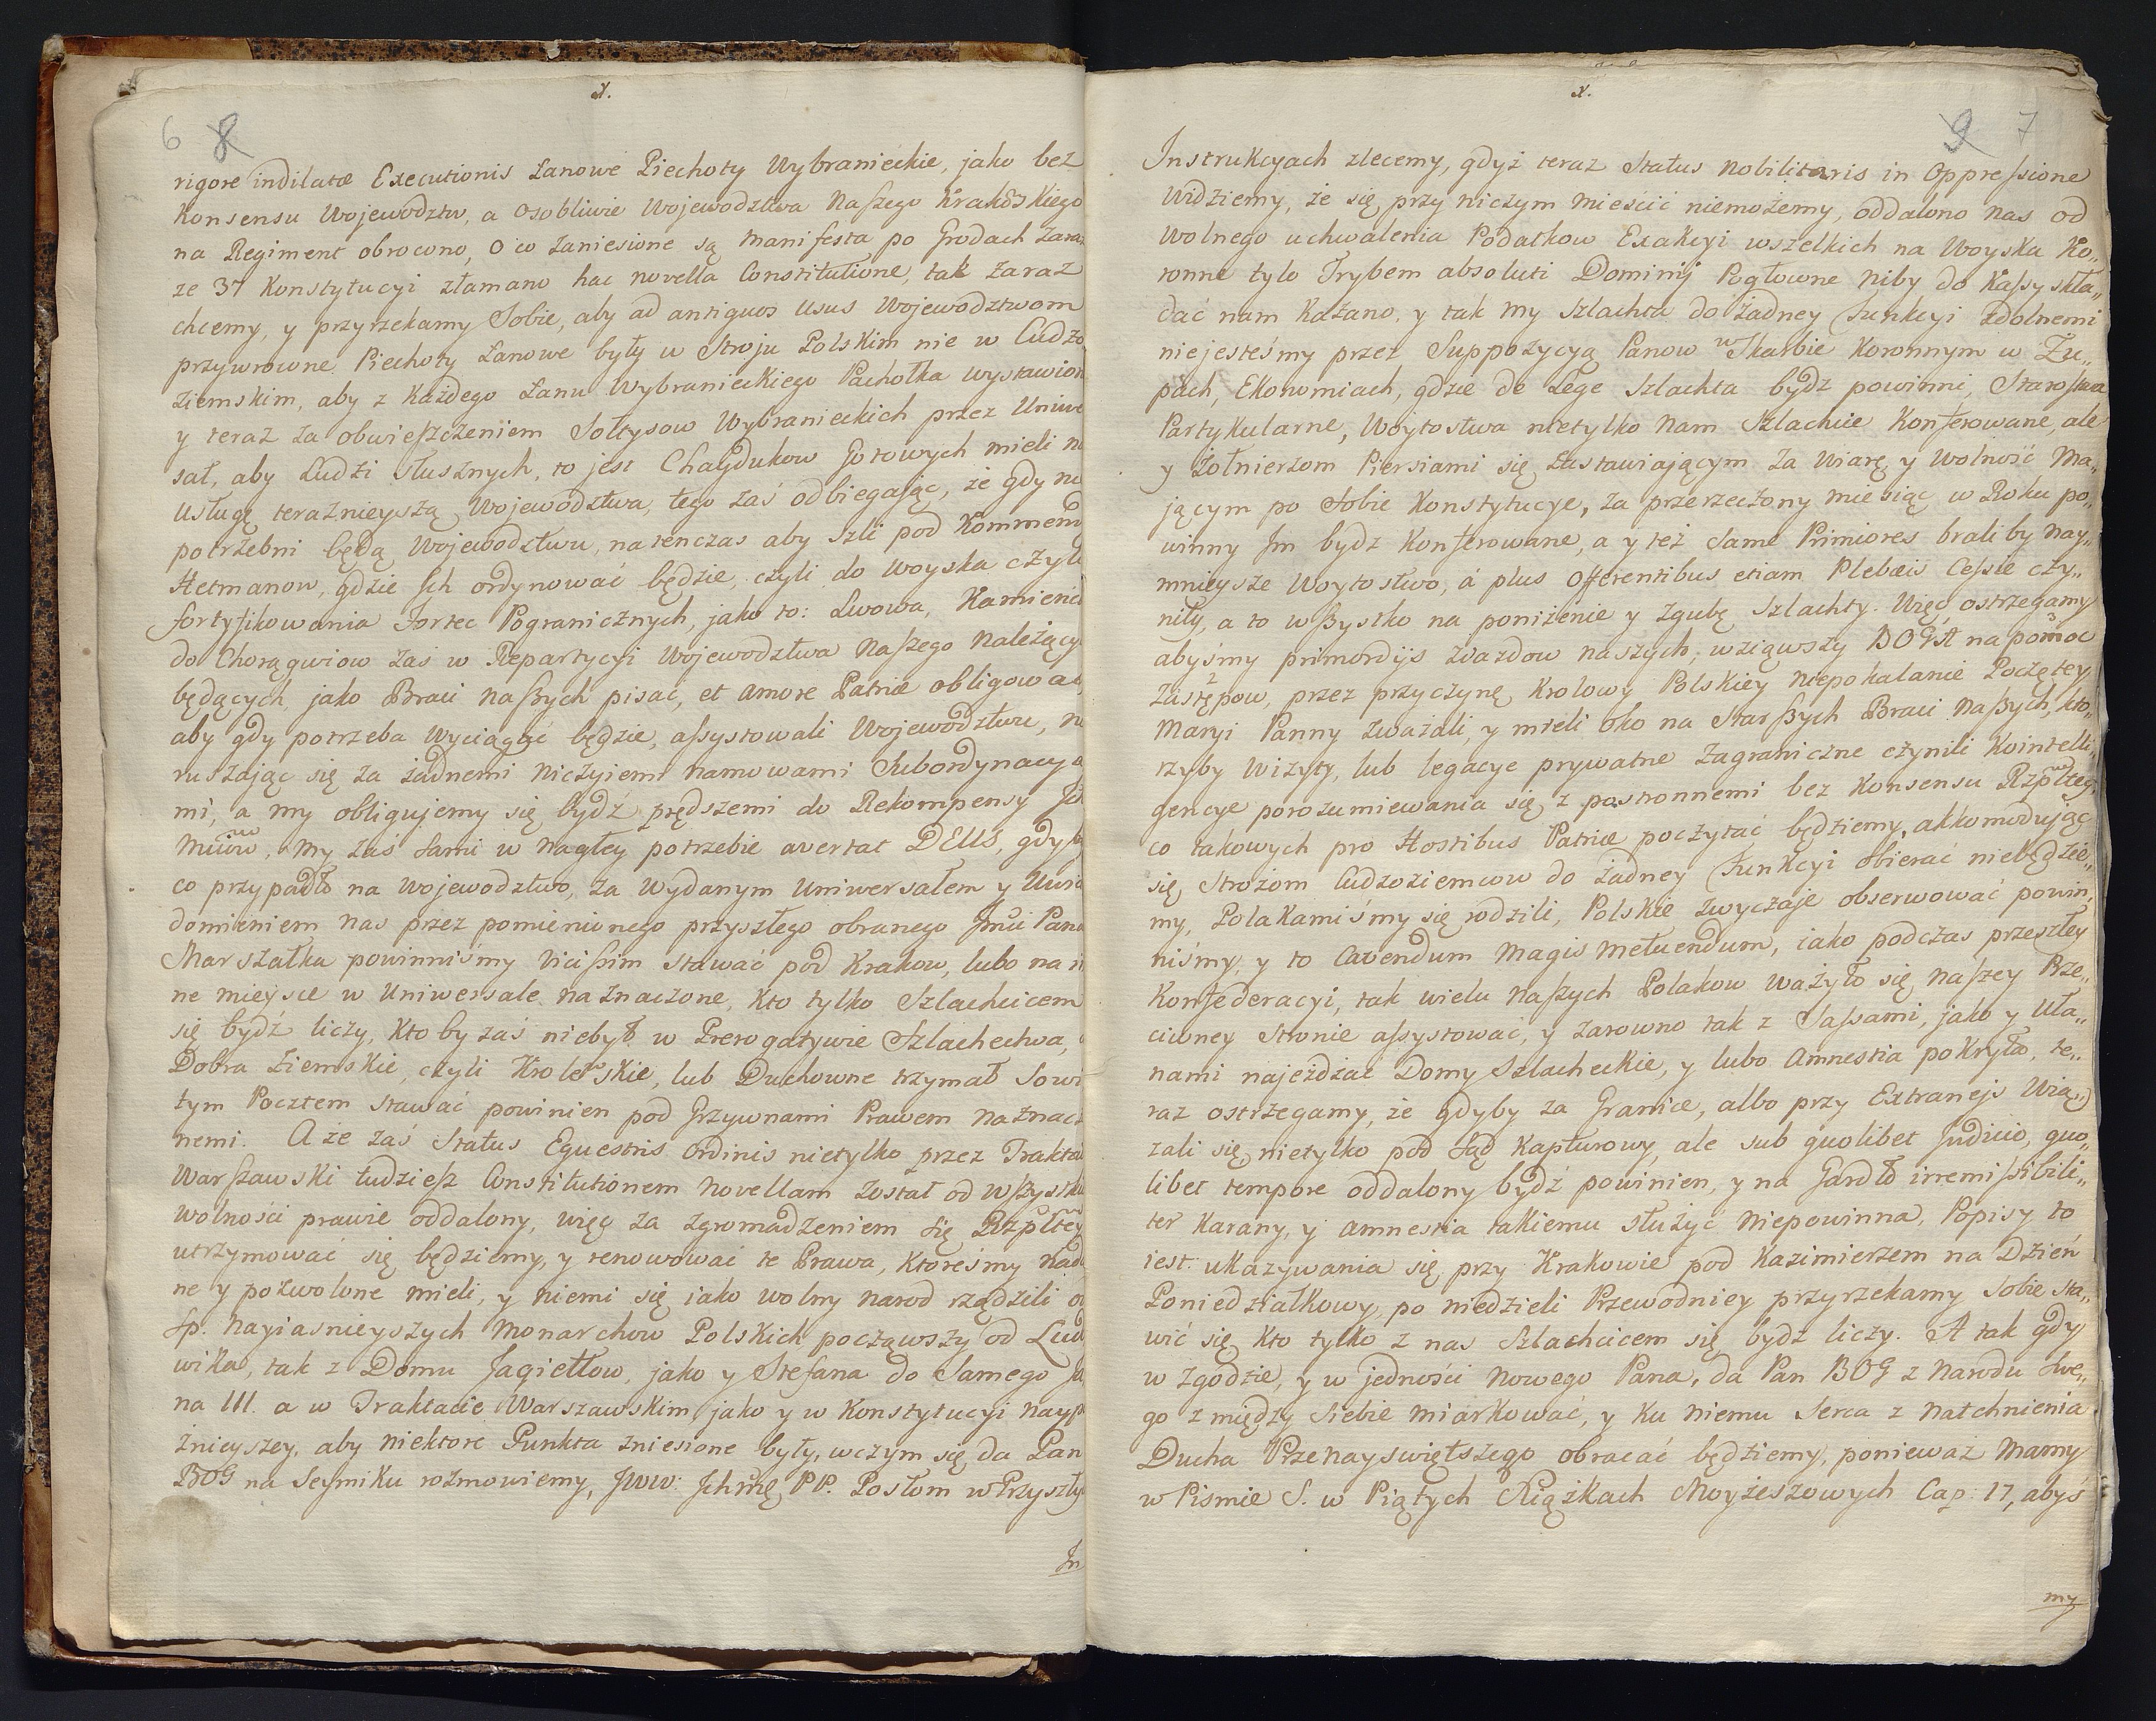 x.
6 8
rigore indilatæ Executionis Łanowe Piechoty Wybranieckie, jako bez
Konsensu Wojewodztw, a osobliwie Wojewodztwa Naszego Krakowskiego
na Regiment obrocono, o co zaniesione są manifesta po Grodach zaraz
ze 37 Konstytucyi złamano hac novella Constitutione, tak zaraz
chcemy, y przyrzekamy Sobie, aby ad antiquos usus Wojewodztwom
przywrocone Piechoty Łanowe były w Stroju Polskim nie w Cudzo
ziemskim, aby z każdego Łanu Wybranieckiego Pachołka wystawion
y teraz za obwieszczeniem Sołtysow Wybranieckich przez Uniwe
sał, aby Ludzi słusznych, to jest Chaydukow Gotowych mieli n
usługę terazniejszą Wojewodztwa, tego zaś odbiegając, że gdy n
potrzebni będą Wojewodztwu, natenczas aby szli pod Kommend
Hetmanow, gdzie Ich ordynować będzie czyli do Woyska czyli
fortyfikowania Fortec Pogranicznych, jako to: Lwowa, Kamieńc
do Chorągwiow zaś w Repartycyi Wojewodztwa Naszego należący
będących, jako Braci naszych pisać, et amore Patriæ obligować
aby gdy potrzeba wyciągać będzie, assystowali Wojewodztwu, n
ruszając się za żadnemi niczyiemi namowami Subordynacya
mi, a my obligujemy się bydź prędszemi do Rekompensy Ich
Mciow. My zaś sami w nagłey potrzebie avertat DEUS, gdyby
co przypadło na Wojewodztwo, za wydanym Uniwersałem y Uwia
domieniem nas przez pomienionego przyszłego obranego Jmći Pana
Marszałka powinniśmy vicissim stawać pod Krakow, lubo na in
ne mieysce w Uniwersale naznaczone, kto tylko Szlachcicem
się bydź liczy, kto by zaś niebył w Prerogatywie Szlachectwa,
Dobra Ziemskie, czyli Krolewskie, lub Duchowne trzymał Sowi
tym Pocztem stawać powinien pod Grzywnami Prawem naznacz
nemi. A że zaś Status Equestris Ordinis nietylko przez Traktat
Warszawski tudziesz Constitutionem Novellam został od wszystki
wolności prawie oddalony, więc za zgromadzeniem się Rzpltey
utrzymować się będziemy, y renowować te Prawa, ktoreśmy nad
ne y pozwolone mieli, y niemi się iako wolny narod rządzili o
Sp. Nayiasnieyszych Monarchow Polskich począwszy od Lud
wika, tak z Domu Jagiełłow, jako y Stefana do Samego Ja
na III. a w Traktacie Warszawskim jako y w Konstytucyi nayp
źnieyszey, aby niektore Punkta zniesione były, w czym się da Pan
BOG na Seymiku rozmowiemy, Jww: Ichmć PP. Posłom w Przyszły
In
x.
9 7
Instrukcyach zlecemy, gdyż teraz Status nobilitaris in Oppressione
widziemy, że się przy niczym mieścić niemożemy, oddalono nas od
wolnego uchwalenia Podatkow Exakcyi wszelkich na Woyska Ko„
ronne tylo Trybem absoluti Dominij Pogłowne niby do Kassy skła„
dać nam kazano, y tak my Szlachta do żadney Funkcyi zdolnemi
niejesteśmy przez Suppozycyą Panow w Skarbie Koronnym w Żu„
pach, Ekonomiach, gdzie de Lege Szlachta bydz powinni, Starostwa
Partykularne, Woytostwa nietylko nam Szlachcie Konferowane, ale
y Żołnierzom Piersiami się zastawiającym za Wiarę y Wolność Ma„
jącym po sobie Konstytucye, za przerzeczony miesiąc w Roku po„
winny Im bydz Konferowane, a y też same Primiores braliby nay„
mnieysze Woytostwo, á plus Offerentibus etiam Plebæis Cessie czy„
niły, a to wszystko na poniżenie y zgubę Szlachty. Więc ostrzegamy
abyśmy primordijs zdazdow naszych, wziąwszy BOGA na pomoc
Zastępow, przez przyczynę Krolowy Polskiey Niepokalanie Poczętey
Maryi Panny zważali, y mieli oko na Starszych Braci naszych, kto„
rzyby Wizyty, lub legacye prywatne zagraniczne czynili Kointelli„
gencye porozumiewania się z postronnemi bez Konsensu Rzpltey
co takowych pro Hostibus Patriæ poczytać będziemy, akkomodując
się Strożom Cudzoziemcow do żadney Funkcyi obierać niebędzie„
my, Polakamiśmy się rodzili, Polskie zwyczaje obserwować powin„
niśmy, y to Cavendum magis metuendum, iako podczas przeszłey
Konfederacyi, tak wielu naszych Polakow ważyło się naszey Prze„
ciwney stronie assystować, y zarowno tak z Sassami, jako y Uła„
nami najeżdżać Domy Szlacheckie, y lubo Amnestia pokryła, te„
raz ostrzegamy, że gdyby za Granice, albo przy Extraneis Wią„
zali się nietylko pod Sąd Kapturowy, ale sub quolibet Judicio, quo„
libet tempore oddalony bydź powinien, y na Gardło irremissibili„
ter karany, y amnestia takiemu służyć niepowinna, Popisy to
iest ukazywania się przy Krakowie pod Kazimierzem na Dzień
Poniedziałkowy, po niedzieli Przewodniey przyrzekamy Sobie sta„
wić się kto tylko z nas Szlachcicem się bydz liczy. A tak gdy
w zgodzie, y w jedności nowego Pana, da Pan BOG z Narodu swe„
go z między siebie miarkować, y ku niemu Serca z natchnienia
Ducha Przenayswiętszego obracać będziemy, ponieważ mamy
w Pismie S. w Piątych Xiążkach Moyżeszowych Cap: 17, abyś
my